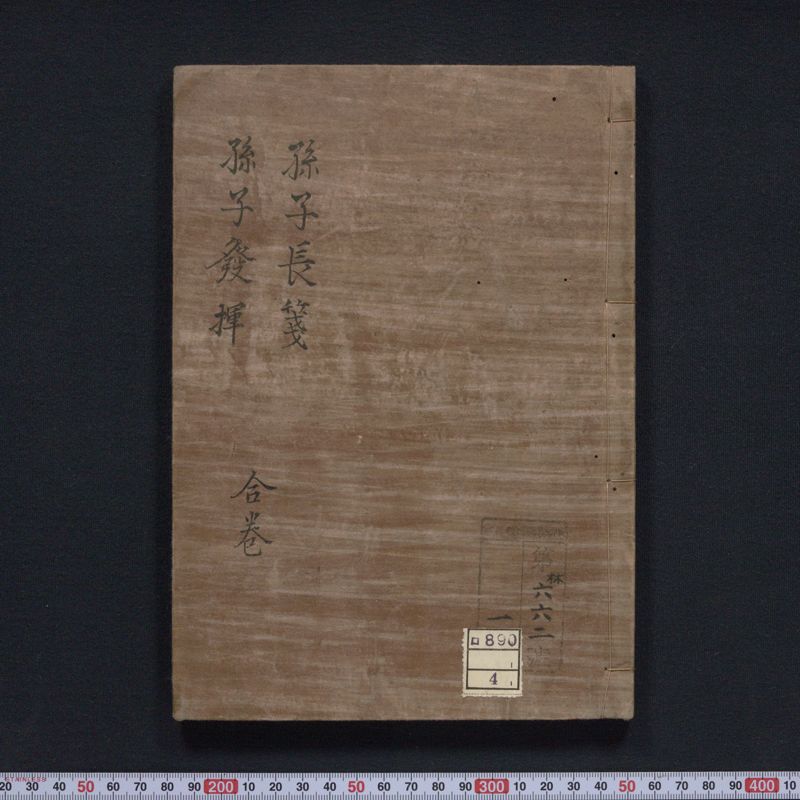 孫子長箋
孫子發揮
合巻
第
林
六六二
一
ロ890
4
STAINLESS
20 30 40 50 60 70 80 90 200 10 20 30 40 50 60 70 80 90 300 10 20 30 40 50 60 70 80 90 400 10